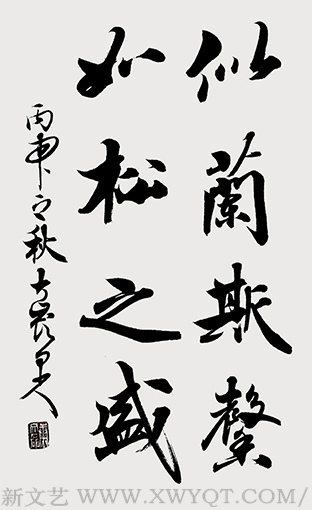 似蘭斯馨
如松之盛
丙申之秋
新文艺 WWW.XWYQT.COM/